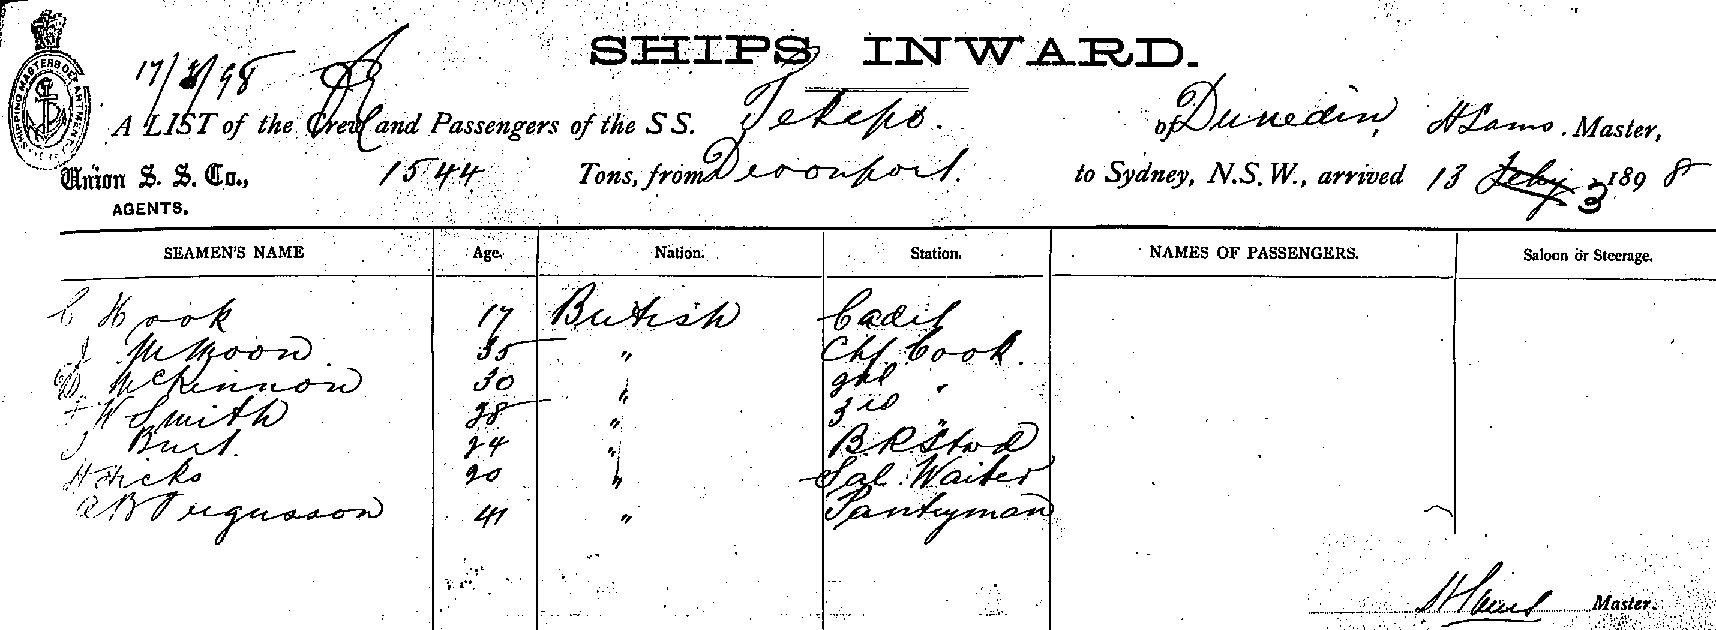 SHIPS INWARD.
17/3/98
A LIST of the Crew and Passengers of the SS. Tekapo. of Dunedin, Master,
Union S. S. Co., 1544 Tons, from Devonport. to Sydney, N.S.W., arrived 13 Feby 3 1898
AGENTS.
SEAMEN'S NAME Age. Nation. Station. NAMES OF PASSENGERS. Saloon or Steerage.
C Hook 17 British Cadet
J 35 " Chf Cook.
McKinnon 30 " 2nd "
W Smith 28 " 3rd "
J Burt. 24 " BR Stwd
H Hicks 20 " Sal. Waiter
A B Fergusson 41 " Pantryman
Master.